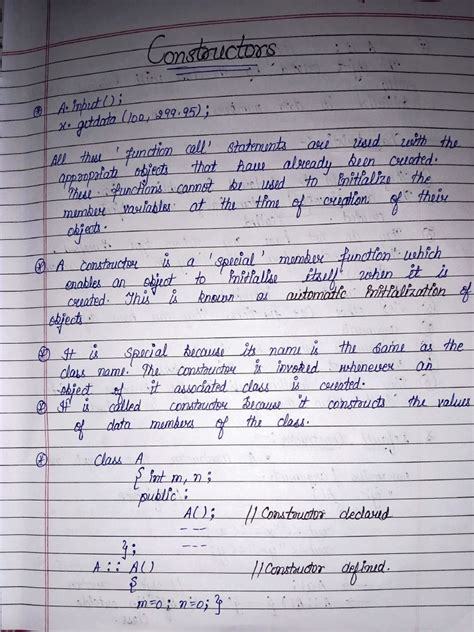 Constructors
A.input();
x. getdata (100, 299.95);
All these 'function call' statements are used with the
appropriate objects that have already been created.
These functions cannot be used to initialize the
member variables at the time of creation of their
objects.
A constructor is a 'special' member function which
enables an object to initialise itself when it is
created. This is known as automatic initialization of
objects.
It is special because its name is the same as the
class name. The constructor is invoked whenever an
object of it associated class is created.
It is called constructor because it constructs the values
of data members of the class.
Class A
{ int m, n;
public :
A(); // Constructor declared
---
};
A :: A() // Constructor defined.
{
m=0; n=0; }